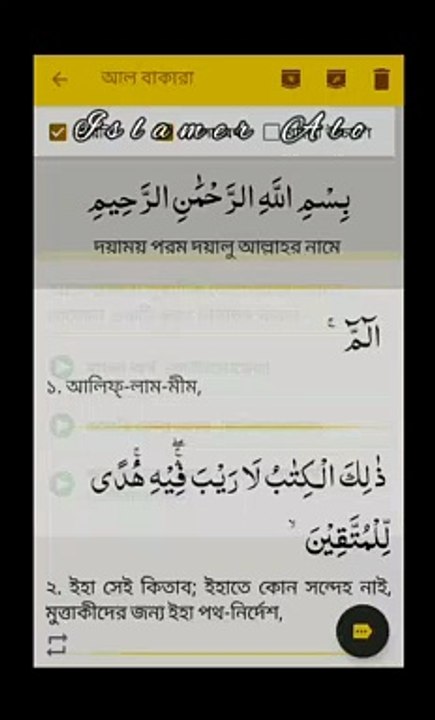 আল বাকারা
Islamer Alo
بِسْمِ اللَّهِ الرَّحْمٰنِ الرَّحِيمِ
দয়াময় পরম দয়ালু আল্লাহর নামে
الٓمّٓ ۚ
১. আলিফ্-লাম-মীম,
ذٰلِكَ الْكِتٰبُ لَا رَيْبَ ۛۖ فِيْهِ ۛۚ هُدًى
لِّلْمُتَّقِيْنَ ۙ
২. ইহা সেই কিতাব; ইহাতে কোন সন্দেহ নাই,
মুত্তাকীদের জন্য ইহা পথ-নির্দেশ,